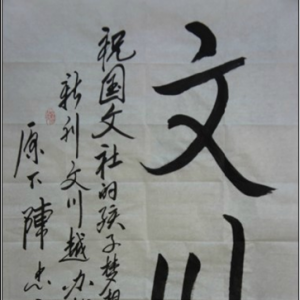 文川
祝国文社的孩子梦
新刊文川越办
原下陳忠